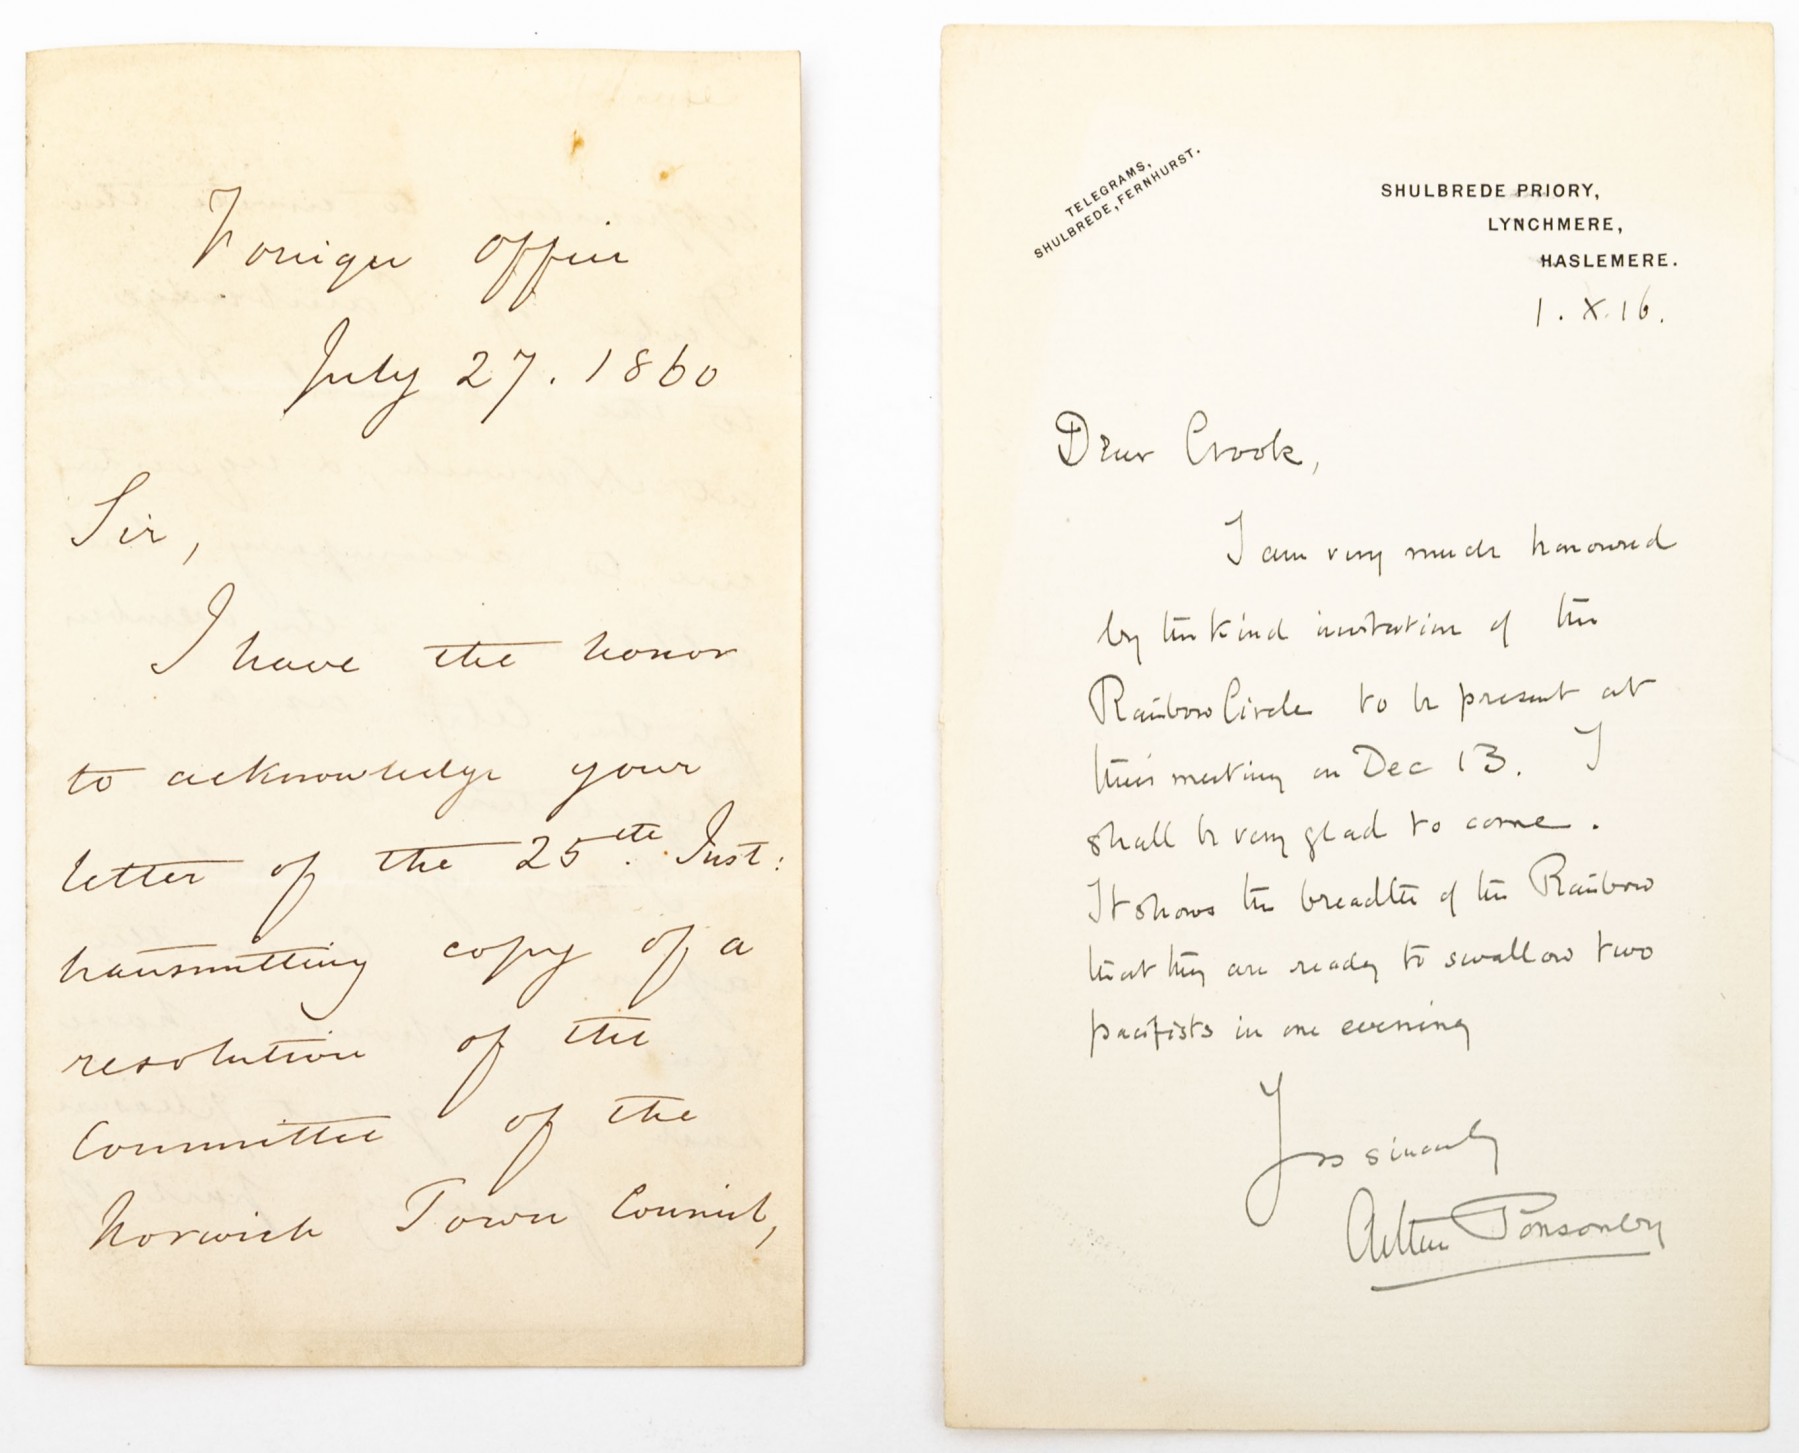 Foreign Office
July 27. 1860
Sir,
I have the honor
to acknowledge your
letter of the 25th. Inst:
transmitting copy of a
resolution of the
Committee of the
Norwich Town Council,
TELEGRAMS,
SHULBREDE, FERNHURST.
SHULBREDE PRIORY,
LYNCHMERE,
HASLEMERE.
1. X. 16.
Dear Crook,
I am very much honoured
by the kind invitation of the
Rainbow Circle to be present at
their meeting on Dec 13. I
shall be very glad to come.
It shows the breadth of the Rainbow
that they are ready to swallow two
pacifists in one evening
Yrs sincerely
Arthur Ponsonby